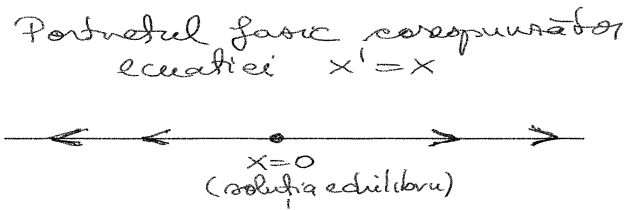 Portretul fazic corespunzător
ecuatiei x' = x
x=0
(soluția echilibru)